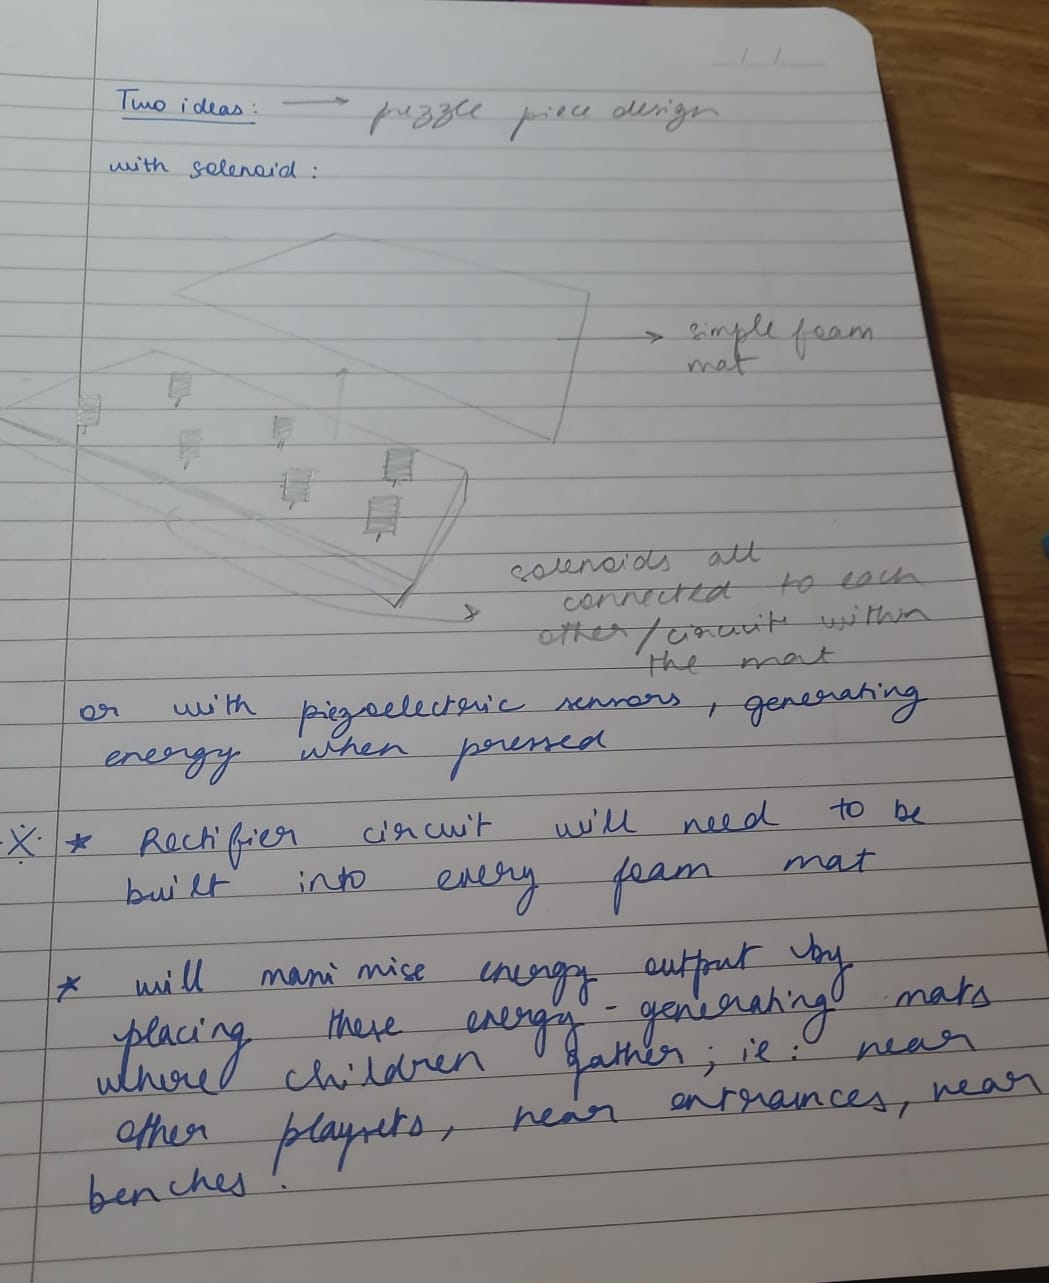 Two ideas: → puzzle piece design
with solenoid:
→ simple foam
mat
solenoids all
connected to each
other/circuit within
the mat
or with piezoelectric sensors, generating
energy when pressed
* Rectifier circuit will need to be
built into every foam mat
* will maximise energy output by
placing these energy-generating mats
where children gather; ie: near
other playsets, near entrances, near
benches.